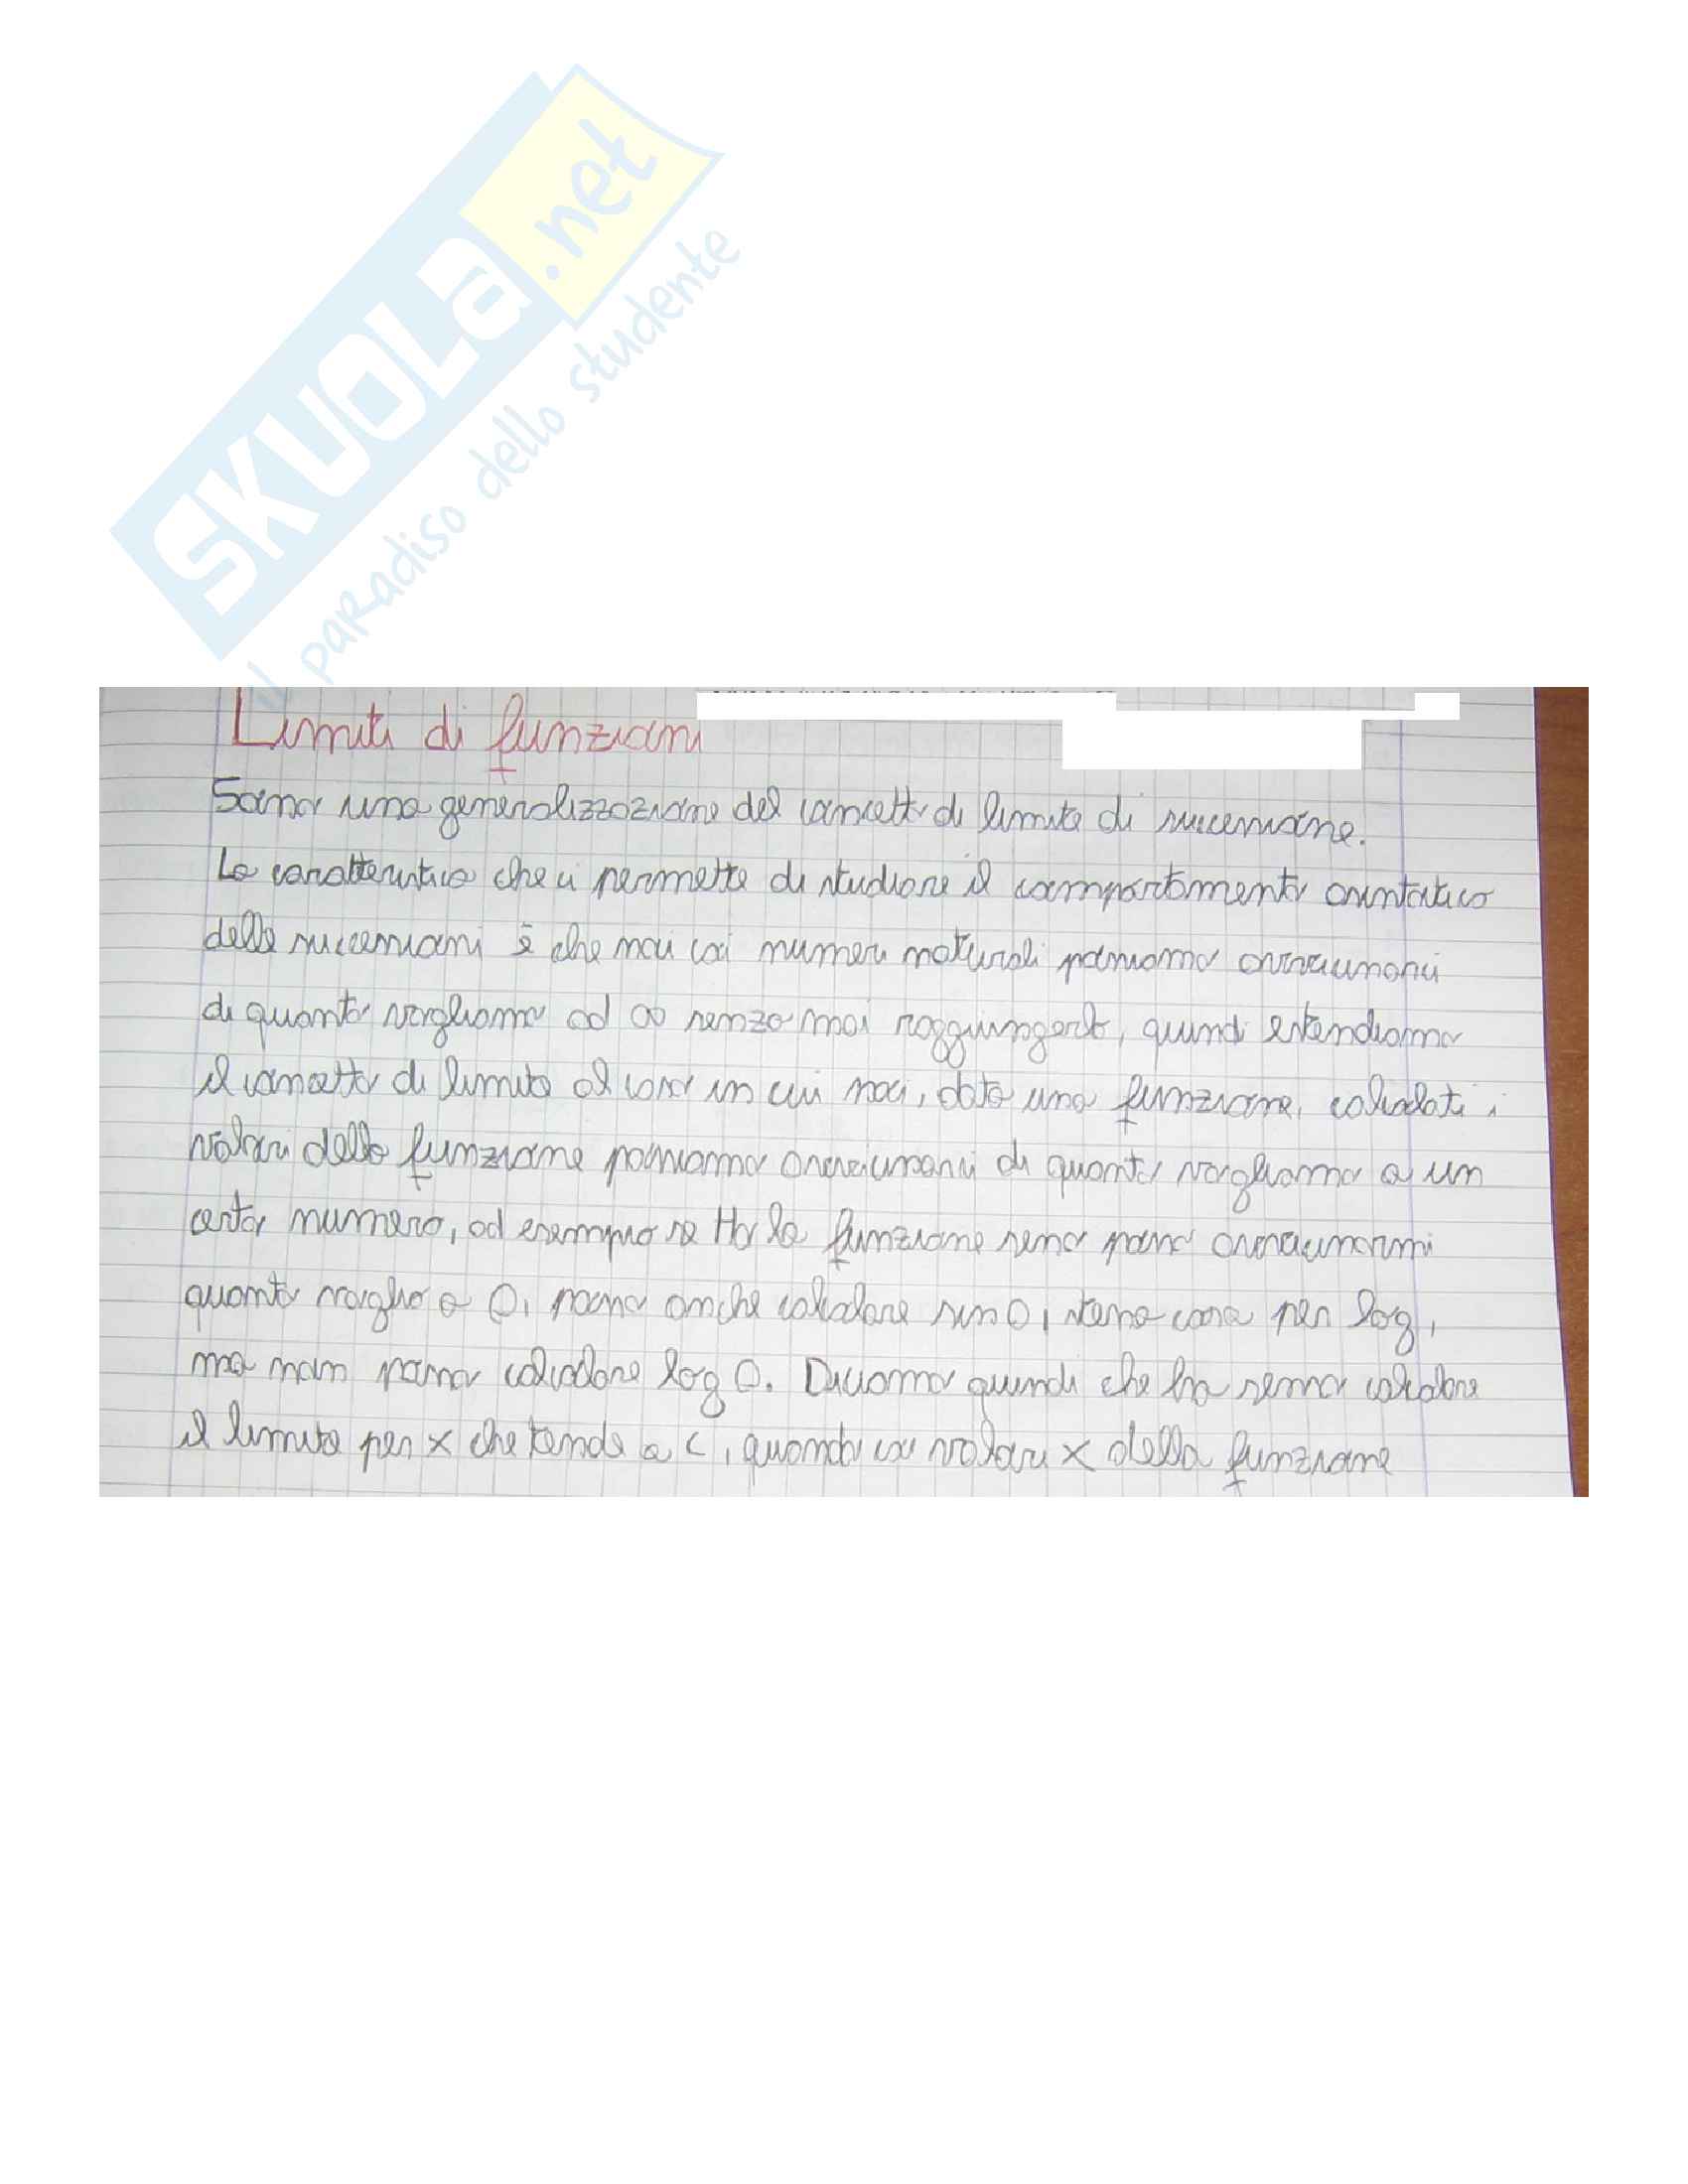 SKUOLa.net
il paradiso dello studente
Limiti di funzioni
Sono una generalizzazione del concetto di limite di successione.
La caratteristica che ci permette di studiare il comportamento asintotico
delle successioni è che noi coi numeri naturali possiamo avvicinarci
di quanto vogliamo ad ∞ senza mai raggiungerlo, quindi estendiamo
il concetto di limite al caso in cui noi, data una funzione, calcolati i
valori della funzione possiamo avvicinarci di quanto vogliamo a un
certo numero, ad esempio se Ho la funzione seno posso avvicinarmi
quanto voglio a 0, posso anche calcolare sin 0, stessa cosa per log,
ma non posso calcolare log 0. Diciamo quindi che ha senso calcolare
il limite per x che tende a c, quando coi valori x della funzione